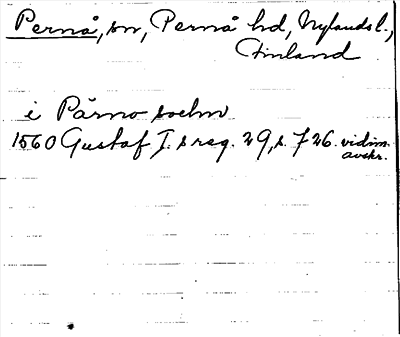 Pernå, sn, Pernå hd, Nylands l.,
Finland
i Pärno sochn
1560 Gustaf I. s reg. 29, s. 726. vidim.
avskr.